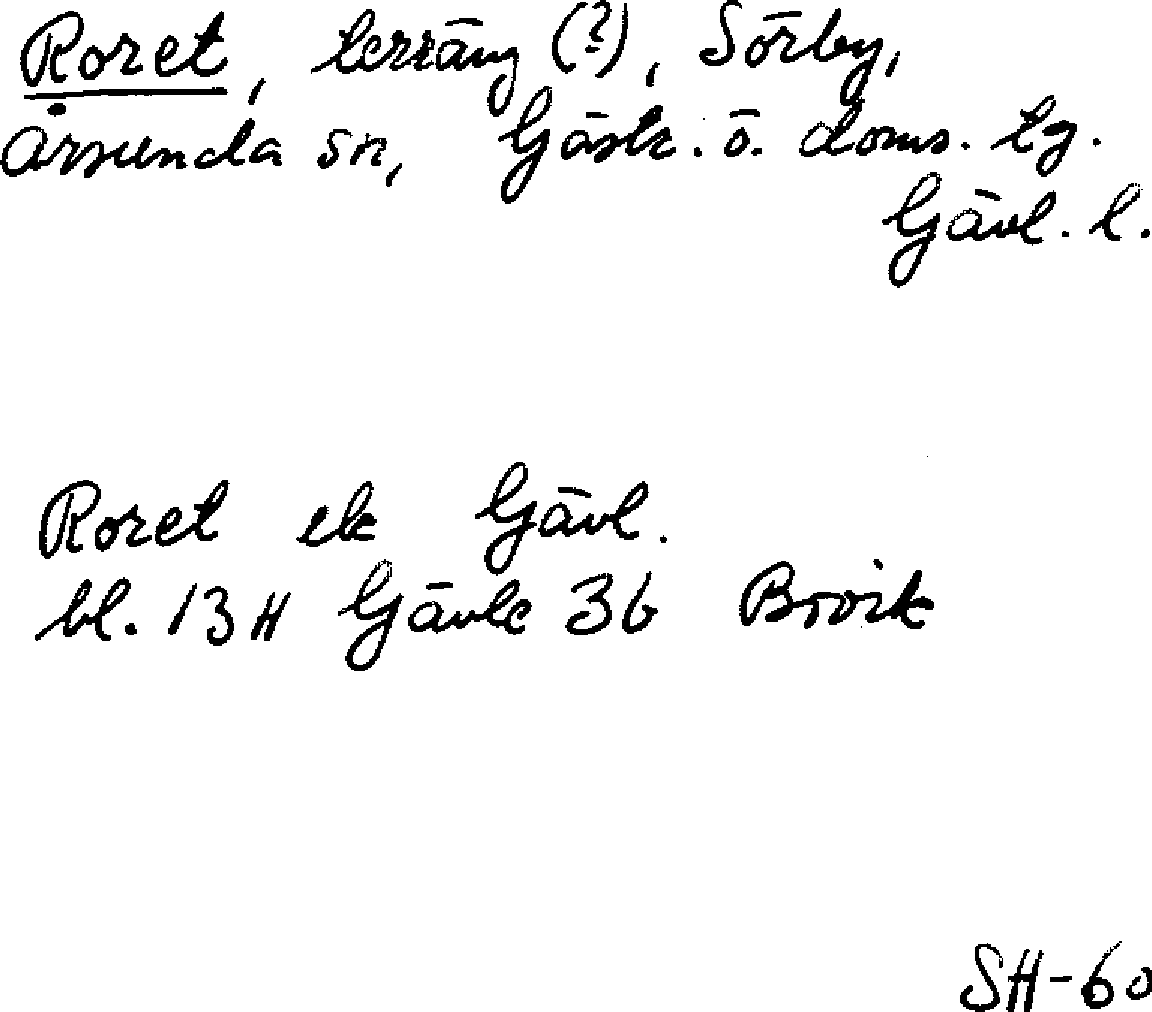 Roret, terräng (?), Sörby,
Årsunda sn, Gästr. ö. doms. tg.
Gävl. l.
Roret ek Gävl.
bl. 13 H Gävle 3b Brovik
SH-60